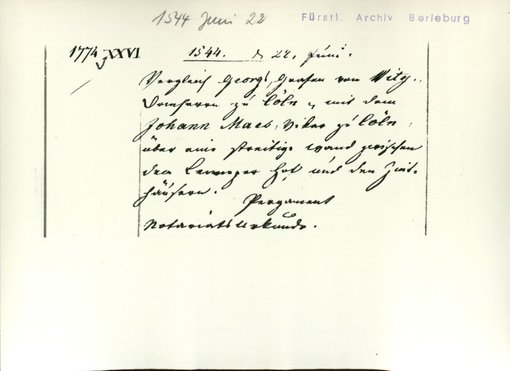 1544 Juni 22
Fürstl. Archiv Berleburg
1774 XXVI
1544. d 22. Juni.
Vergleich Georgs, Grafen von Witg.,
Domherrn zu Cöln, mit dem
Johann Maes, Vikar zu Cöln,
über eine streitige wand zwischen
dem Lenneper Hof und den Zins-
häusern.
Pergament
Notariatsurkunde.